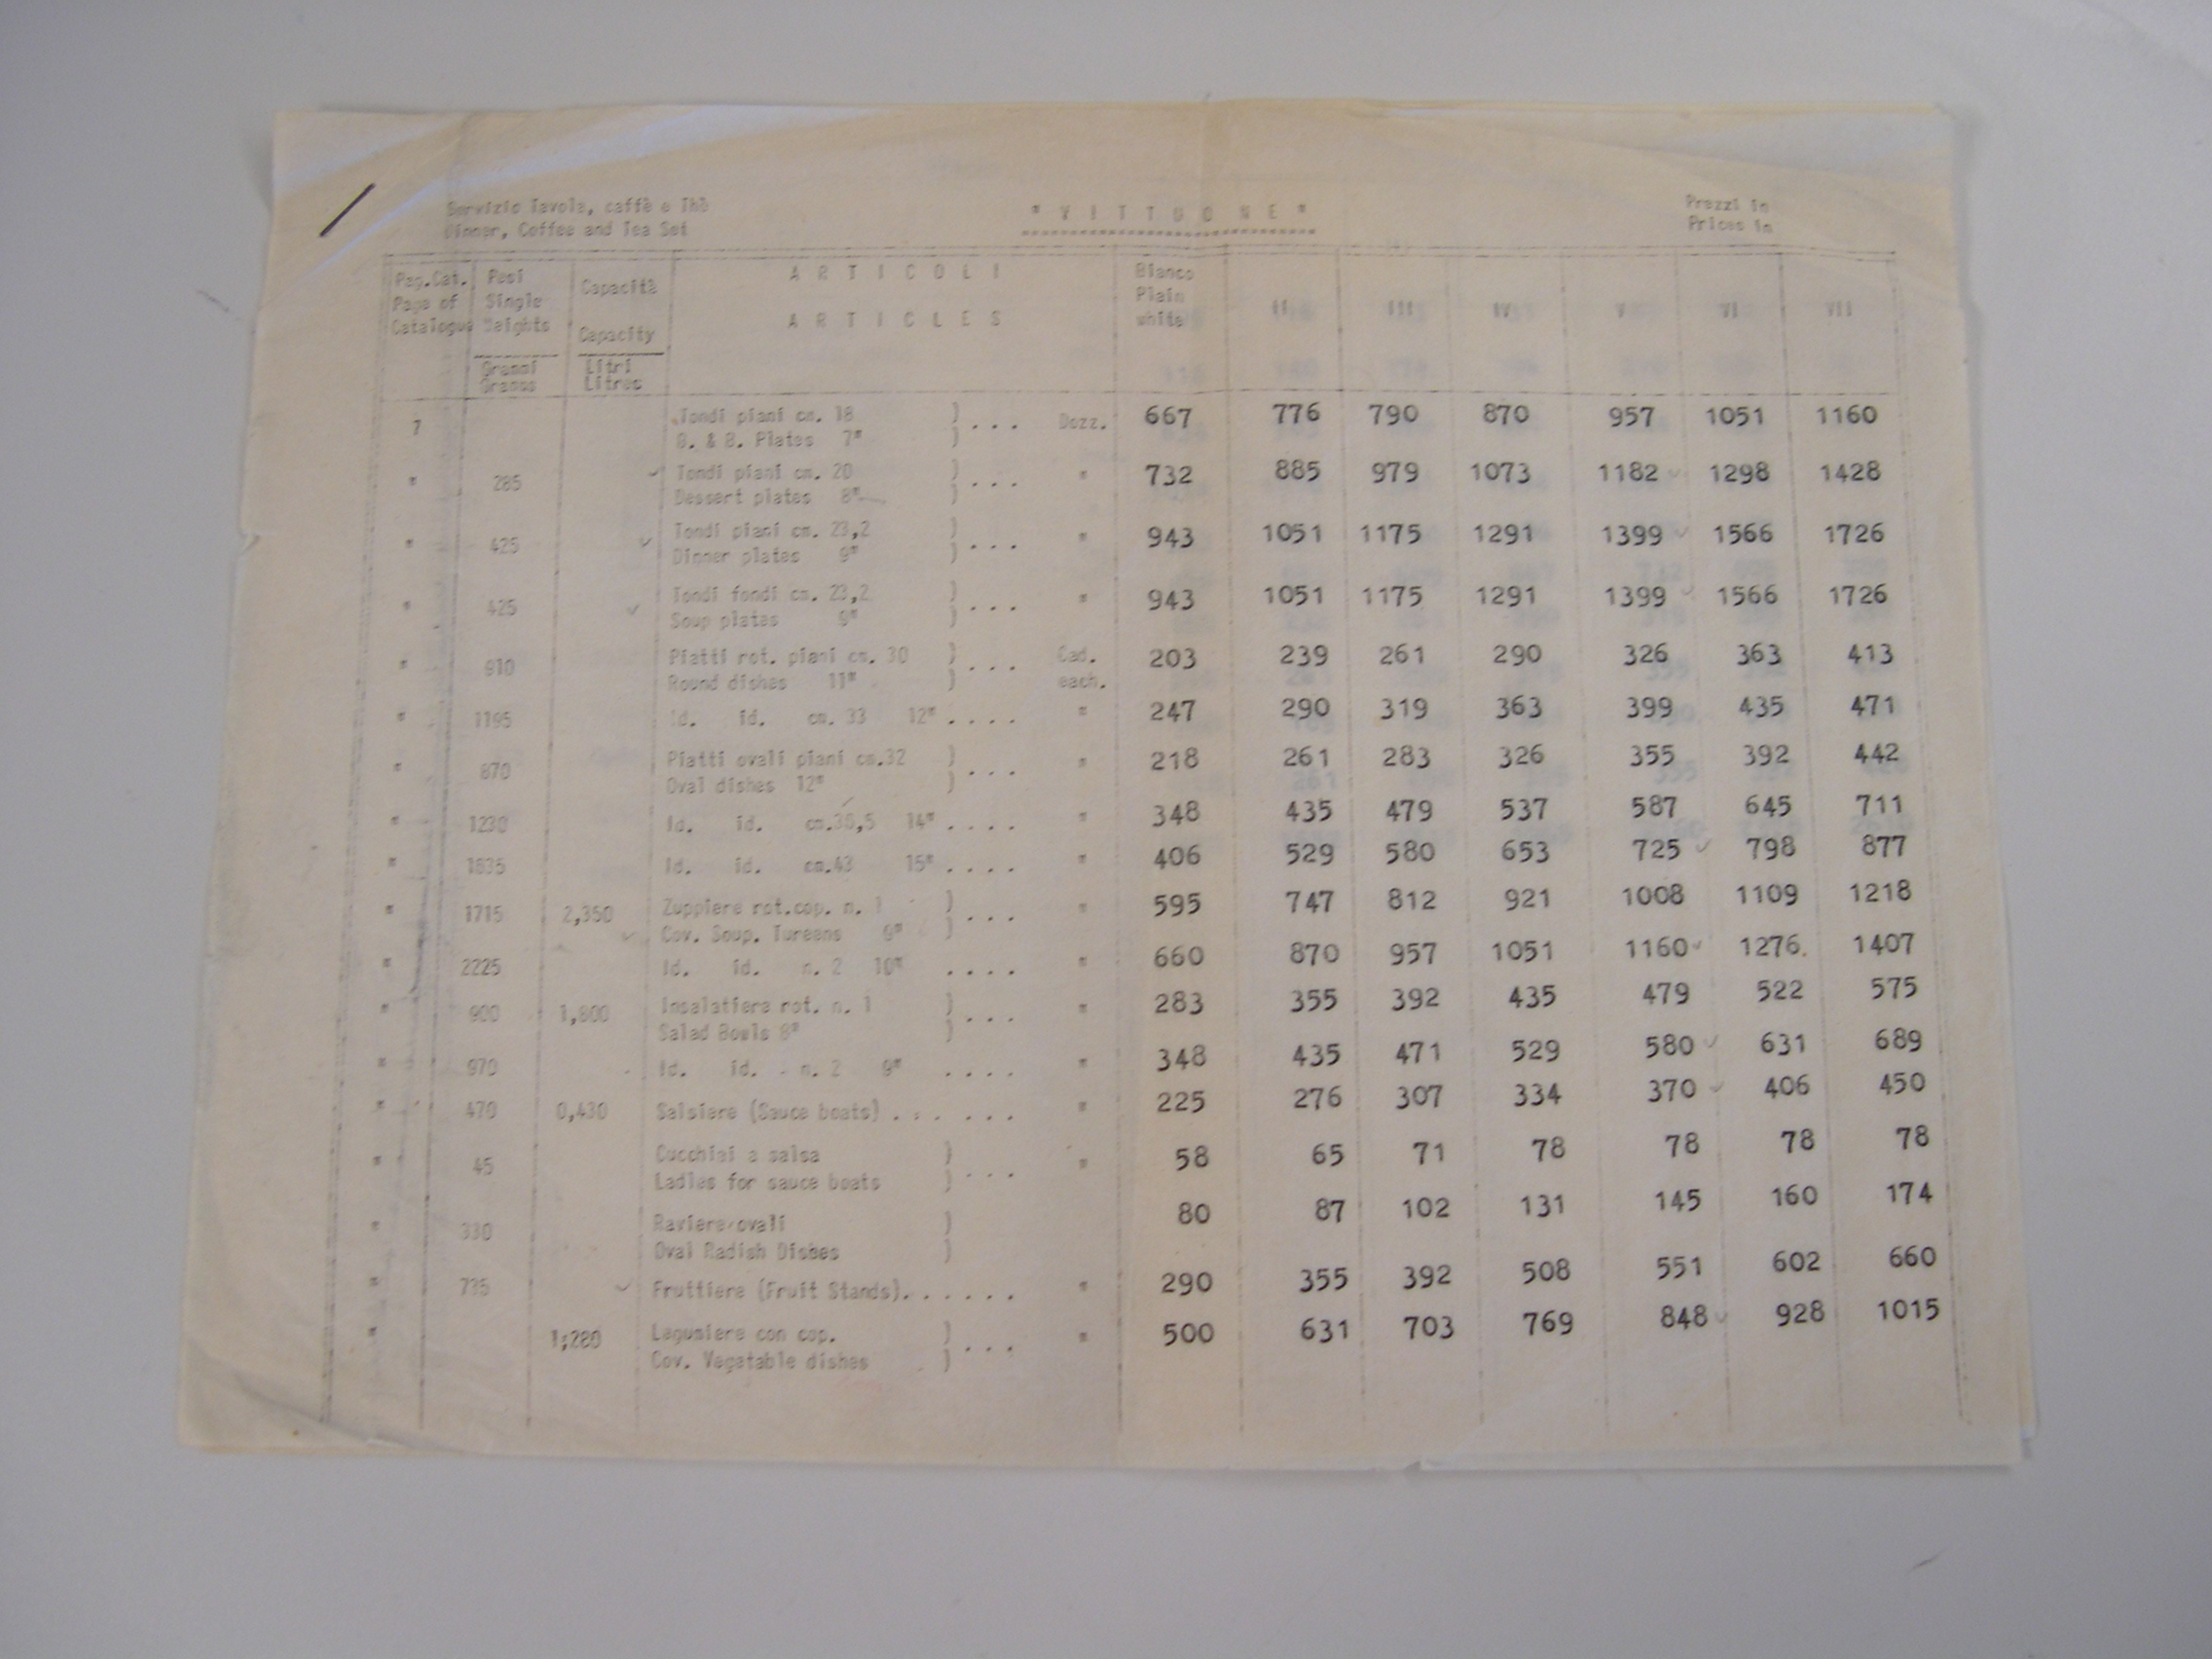 Servizio Tavola, caffè e Thè
Dinner, Coffee and Tea Set
Prezzi in
Prices in
Pag.Cat. Page of Catalogue
Pesi Single Weights
Grammi Grams
Capacità Capacity
Litri Litres
ARTICOLI
ARTICLES
Bianco Plain white II III IV V VI VII
7 Tondi piani cm. 18 ) ... Dozz. 667 776 790 870 957 1051 1160
B. & B. Plates 7" )
" 285 Tondi piani cm. 20 ) ... " 732 885 979 1073 1182 1298 1428
Dessert plates 8" )
" 425 Tondi piani cm. 23,2 ) ... " 943 1051 1175 1291 1399 1566 1726
Dinner plates 9" )
" 425 Tondi fondi cm. 23,2 ) ... " 943 1051 1175 1291 1399 1566 1726
Soup plates 9" )
" 910 Piatti rot. piani cm. 30 ) ... Cad. 203 239 261 290 326 363 413
Round dishes 11" ) each.
" 1195 Id. id. cm. 33 12" .... " 247 290 319 363 399 435 471
" 870 Piatti ovali piani cm.32 ) ... " 218 261 283 326 355 392 442
Oval dishes 12" )
" 1230 Id. id. 14" .... " 348 435 479 537 587 645 711
" Id. id. cm.43 15" .... " 406 529 580 653 725 798 877
" 1715 2,350 Zuppiere rot.cop. n. 1 ) ... " 595 747 812 921 1008 1109 1218
Cov. Soup. Tureens 9" )
" 2225 Id. id. n. 2 10" .... " 660 870 957 1051 1160 1276. 1407
" 900 1,800 Insalatiera rot. n. 1 ) ... " 283 355 392 435 479 522 575
Salad Bowls 8" )
" 970 Id. id. n. 2 9" .... " 348 435 471 529 580 631 689
" 470 0,430 Salsiere (Sauce boats) ... ... " 225 276 307 334 370 406 450
" 45 Cucchiai a salsa ) ... " 58 65 71 78 78 78 78
Ladles for sauce boats )
" 330 Raviere ovali ) 80 87 102 131 145 160 174
Oval Radish Dishes )
" 735 Fruttiere (Fruit Stands)...... " 290 355 392 508 551 602 660
" 1,280 Legumiere con cop. ) ... " 500 631 703 769 848 928 1015
Cov. Vegetable dishes )